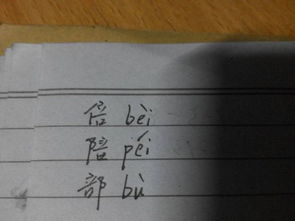 倍 bèi
陪 péi
部 bù